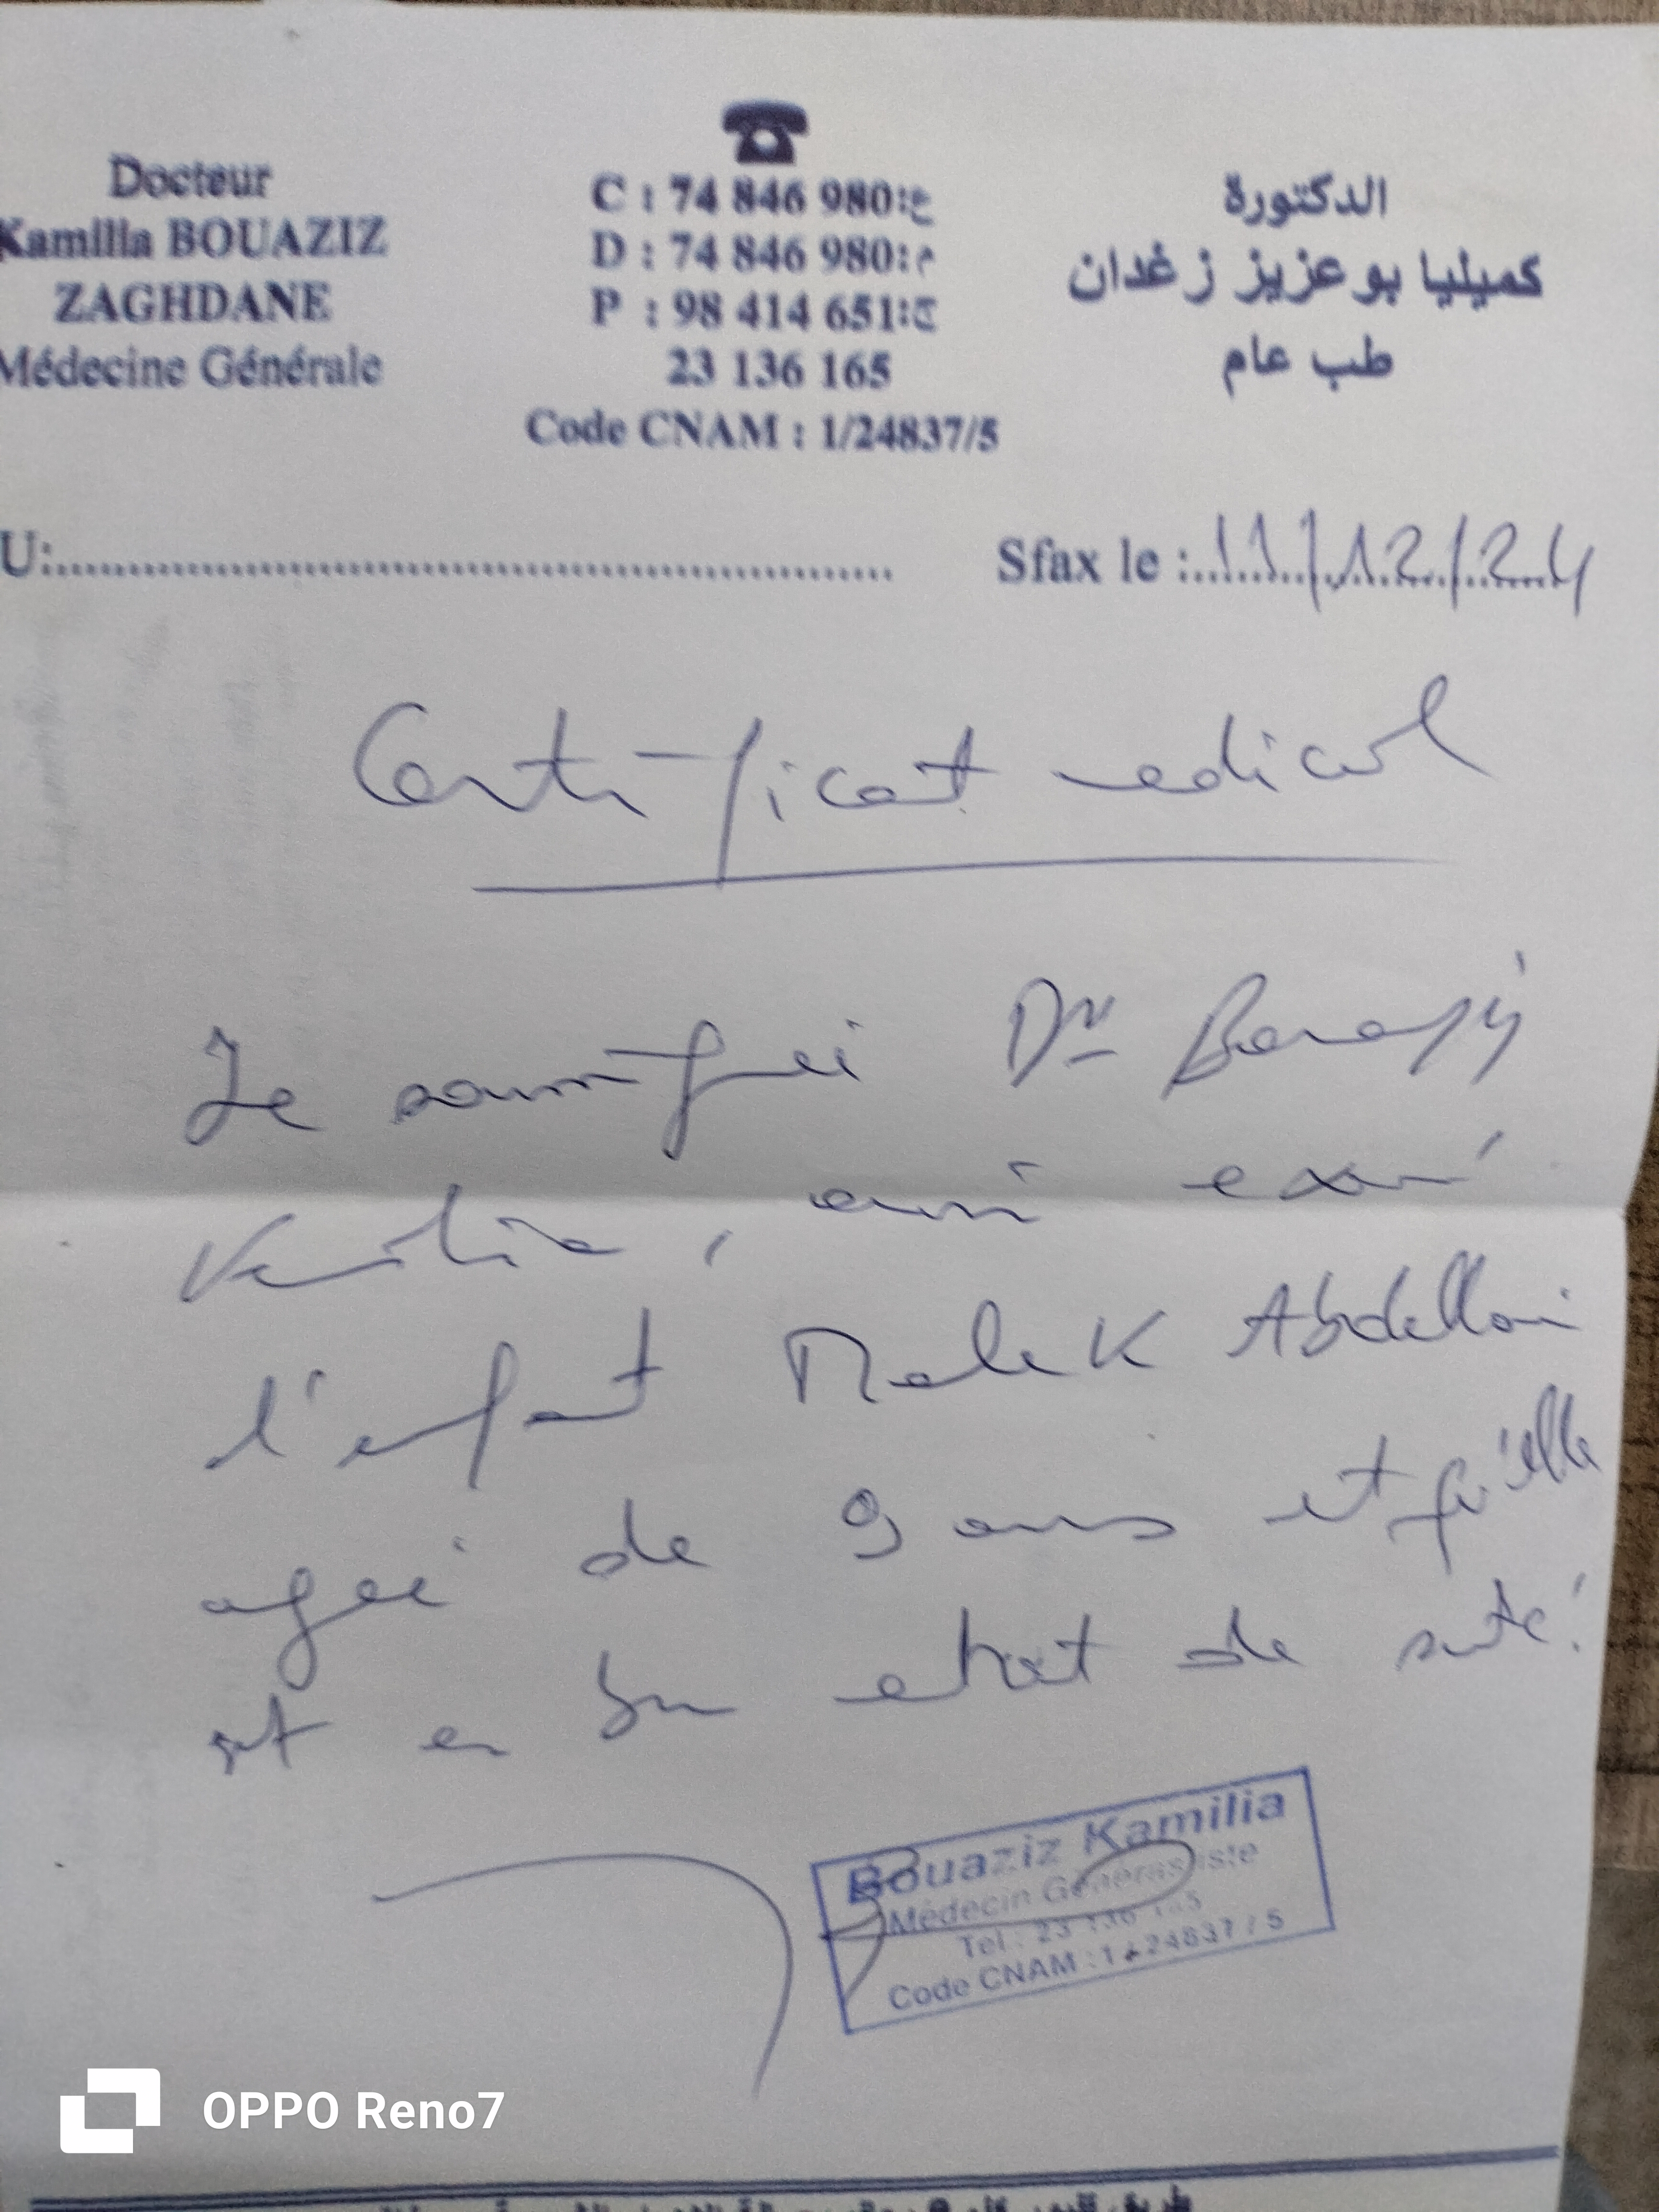 Docteur
Kamilia BOUAZIZ
ZAGHDANE
Médecine Générale
C : 74 846 980 :ع
D : 74 846 980 :م
P : 98 414 651 :ج
23 136 165
Code CNAM : 1/24837/5
الدكتورة
كميليا بوعزيز زغدان
طب عام
U:
Sfax le : 11/12/24
Certificat medical
Je soussigné Dr Bouaziz
Kamilia, avoir examiné
l'enfant Malek Abdellaoui
agée de 9 ans et qu'elle
est en bon etat de santé.
Bouaziz Kamilia
Médecin Généraliste
Tel : 23 136 165
Code CNAM : 1/24837/5
OPPO Reno7